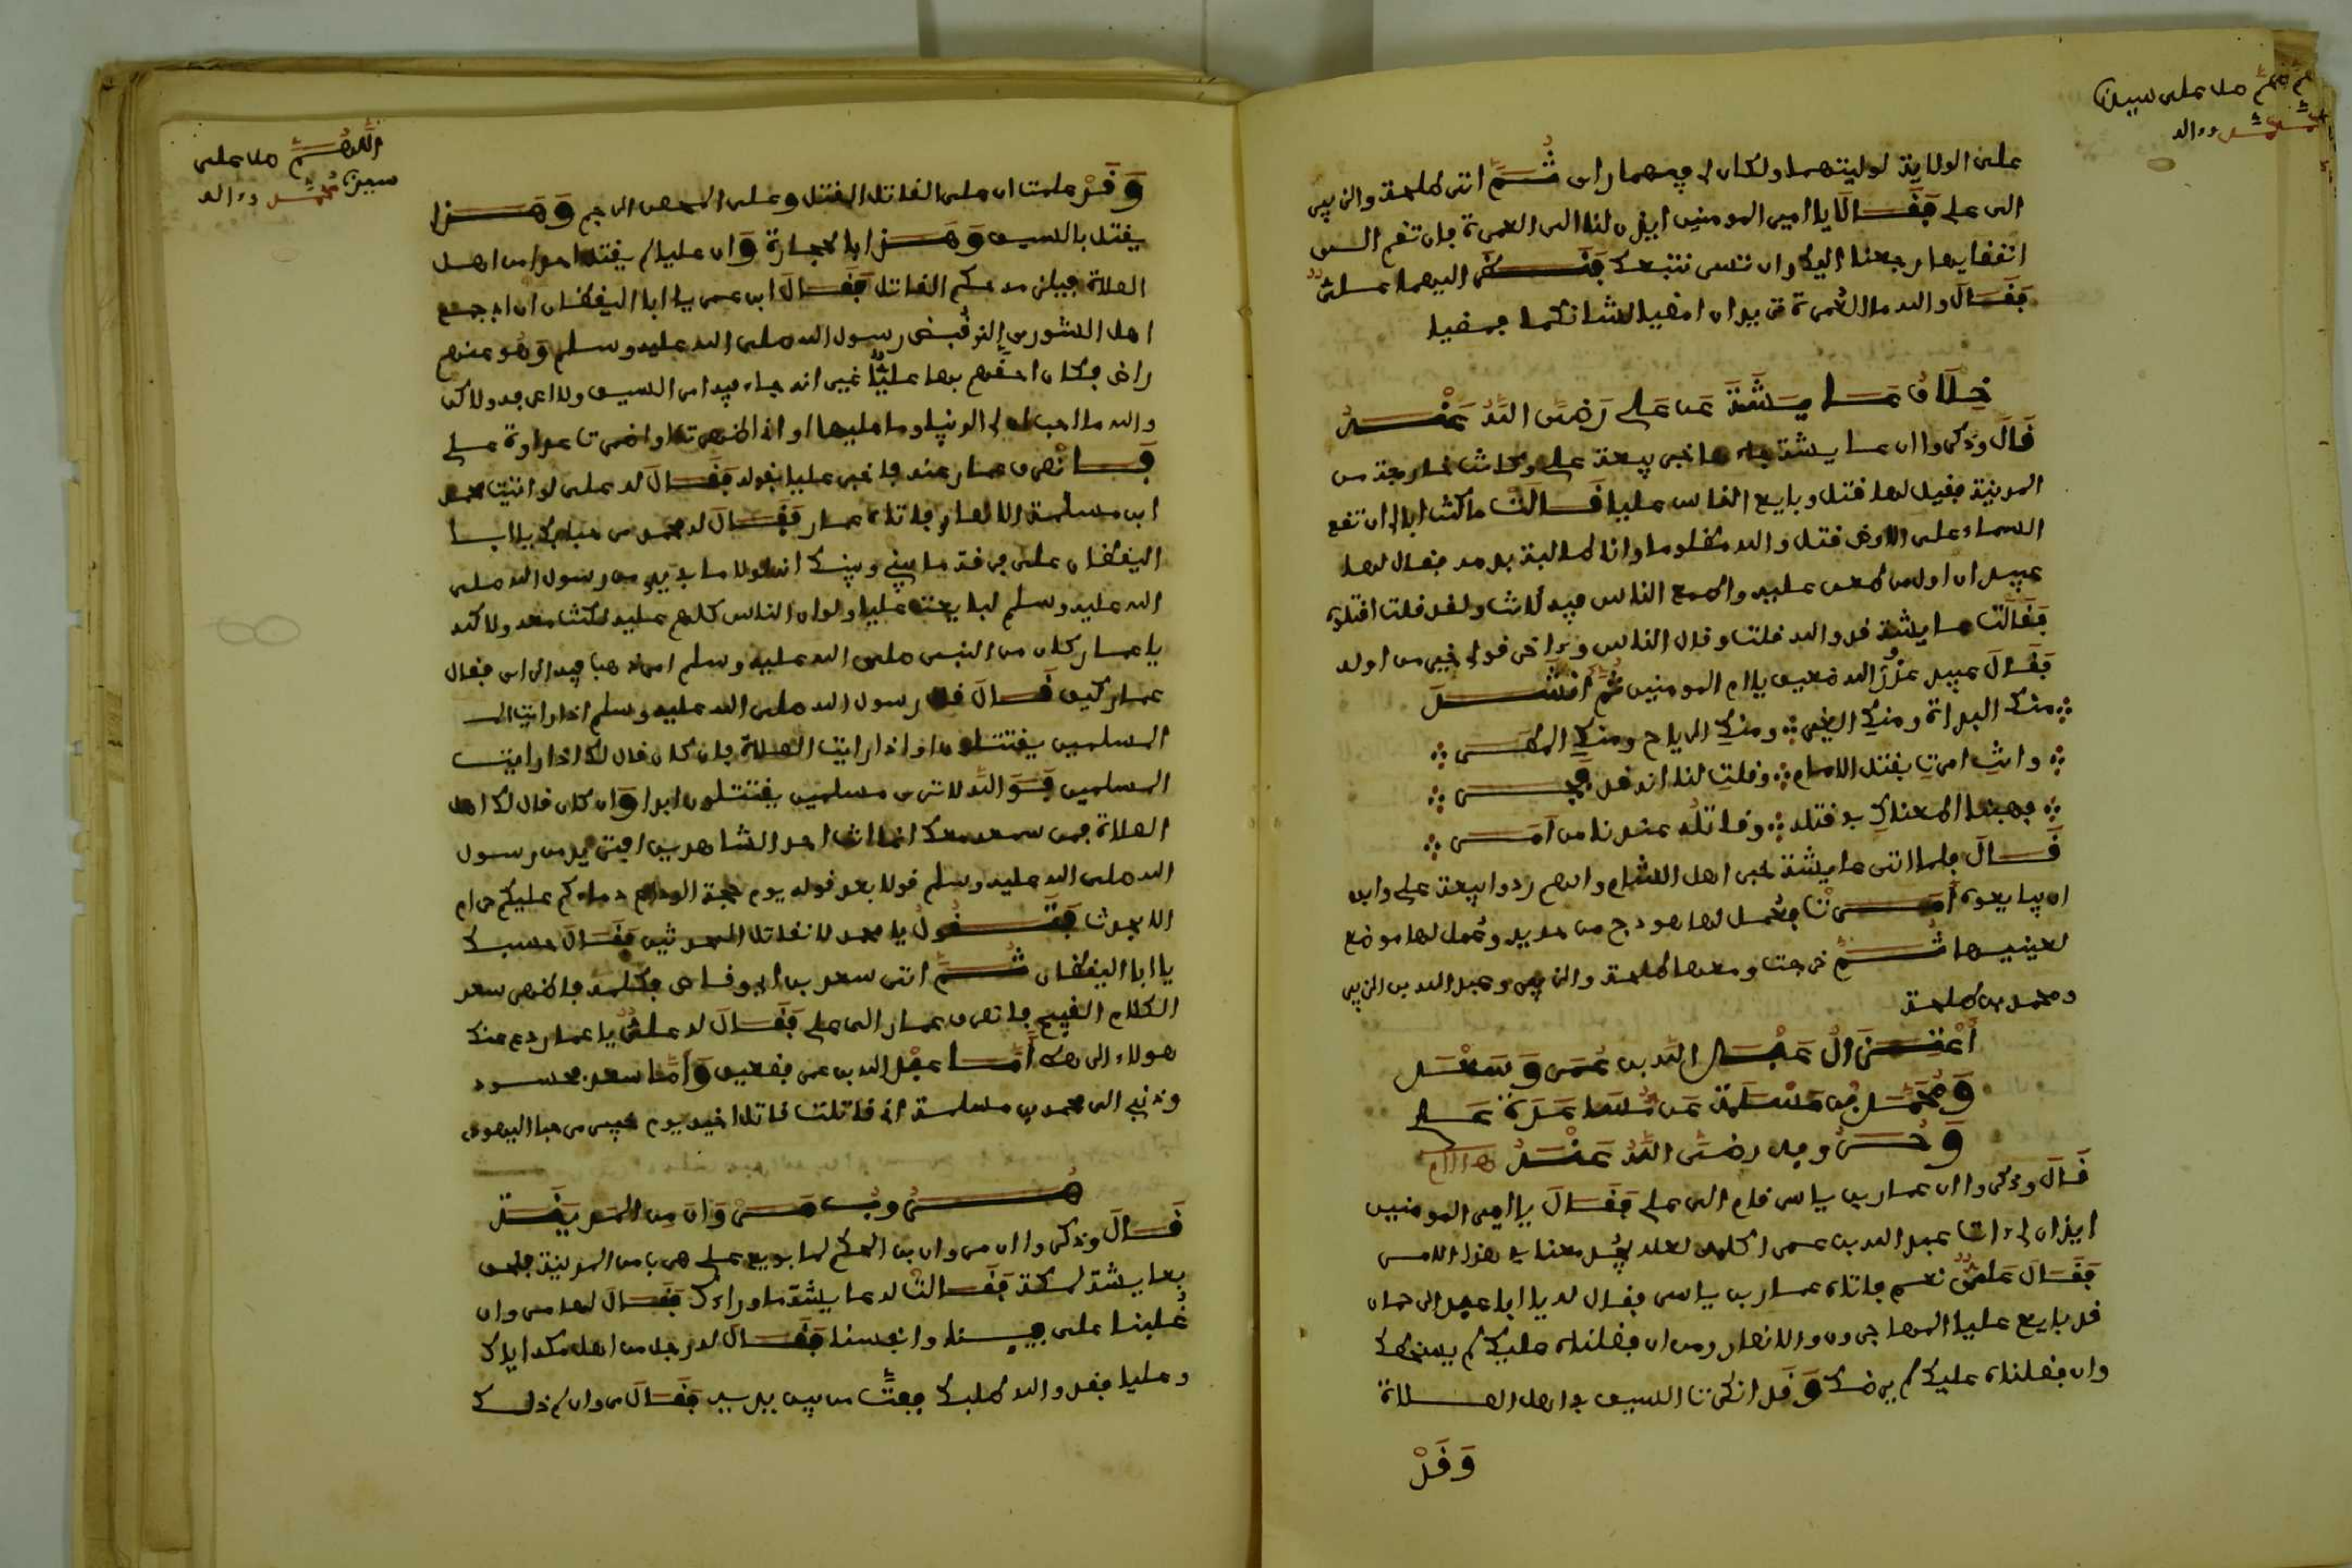 اللهم صل على سيدنا
محمد وءاله
على الولاية لوليتهما ولكان لي فيهما راي ثُمَّ اتى طلحة والزبير
الى علي فَقَالَا يا امير المومنين ايذن لنا الى العمرة فان تقم الى
انقضايها رجعنا اليك وان تسر نتبعك فَنَظَرَ اليهما عليٌّ
فَقَالَ والله ما العُمرة تريدان امضيا لشانكما فمضيا
خِلَاف عَايِشَةَ عَن عَلي رَضِيَ اللَّهُ عَنْهُ
قَالَ وذكروا ان عايشة جاءها خبر بيعة علي وكانت خارجة من
المدينة فقيل لها قتل وبايع الناس عليا فَقَالَتْ ما كنت ابالي ان تقع
السماء على الارض قتل والله مظلوما وانا طالبة بدمه فقال لها
عبيد ان اول من طعن عليه واطمع الناس فيه لانت ولقد قلت اقتلوه
فَقَالَت عايشة قد والله قلت وقال الناس وءاخر قولي خير من اوله
فَقَالَ عبيد عُذْرٌ والله ضعيف يا ام المومنين ثُمَّ انشَدَ
منك البداة ومنكِ الغير ومنكِ الرياح ومنكِ المطر
وانتِ امرتِ بقتل الامام وقلتِ لنا انه قد فجر
فهبنا اطعناكِ في قتله وقاتلُه عندنا من اَمَر
قَالَ فلما اتى عايشة خبر اهل الشام وانهم ردوا بيعة علي وابو
ان يبايعوه اَمَرَتْ فعُمل لها هودج من حديد وعُمل لها موضع
لعينيها ثُمَّ خرجت ومعها طلحة والزبير وعبد الله بن الزبير
ومحمد بن طلحة
اعْتِزَال عَبْد اللَّه بن عُمَر وَسَعْد
وَمُحَمَّد بْن مَسْلَمَة عَن مُشَاهَدَة عَلي
وَحُروبه رضيَ اللَّهُ عَنْهُ
قَالَ وذكروا ان عمار بن ياسر قام الى علي فَقَالَ يا امير المومنين
ايذن لي ءات عبد الله بن عمر اكلمه لعله يخف معنا في هذا الامر
فَقَالَ عليٌّ نعم فاتاه عمار بن ياسر فقال له يا ابا عبد الرحمان
قد بايع عليا المهاجرون والانصار ومن ان فضلناه عليك لم يسخطك
وان فضلناه عليك لم يرضك وَقد انكرت السيف في اهل الصلاة
وَقَدْ
اللَّهُمَّ صل على
سيدنا محمد وءاله
وَقَدْ علمت ان على القاتل القتل وعلى المحصن الرجم وَهَذا
يقتل بالسيف وَهَذا بالحجارة وَان عليا لم يقتل احدا من اهل
الصلاة فيلزمه حكم القاتل فَقَالَ ابن عمر يا ابا اليقظان ان ابي جمع
اهل الشورى الذين قُبض رسول الله صلى الله عليه وسلم وَهو عنهم
راض فكان احقهم بها عليًّا غير انه جاء فيه امر السيف ولا اعرفه ولاكن
والله ما احب ان لي الدنيا وما عليها او اني اظهرت او اضمرت عداوة علي
فَانْصرف عمار عنه فاخبر عليا بقوله فَقَالَ له علي لو اتيت محمد
ابن مسلمة الانصاري فاتاه عمار فَقَالَ له محمد مرحبا بك يا ابا
اليقظان على فرقة ما بيني وبينك انه لولا ما في يدي من رسول الله صلى
الله عليه وسلم لبايعت عليا ولو ان الناس كلهم عليه لكنت معه ولاكنه
يا عمار كان من النبي صلى الله عليه وسلم امر ذهب فيه الراي فقال
عمار كيف قَالَ قال رسول الله صلى الله عليه وسلم اذا رايت
المسلمين يقتتلون او اذا رايت الصلاة فان كان قال لك اذا رايت
المسلمين فَوَاللَّه لا ترى مسلمين يقتتلون ابدا وَان كان قال لك اهل
الصلاة فمن سمعه معك انما انت احد الشاهدين افتريد من رسول
الله صلى الله عليه وسلم قولا بعد قوله يوم حجة الوداع دماءكم عليكم حرام
الا بحدث فَتَقُولُ يا محمد لا نقاتل المحدثين فَقَالَ حسبك
يا ابا اليقظان ثُمَّ اتى سعد بن ابي وقاص فكلمه فاظهر سعد
الكلام القبيح فانصرف عمار الى علي فَقَالَ له عليٌّ يا عمار دع عنك
هولاء الرهط اَمَّا عبد الله بن عمر فضعيف وَاَمَّا سعد فحسود
وذنبي الى محمد بن مسلمة اني قاتلت قاتل اخيه يوم خيبر مرحبا اليهودي
هُروب مَرْوَان مِن المَدِينَة
قَالَ وذكروا ان مروان بن الحكم لما بويع علي هرب من المدينة فلحق
بعايشة بمكة فَقَالتْ له عايشة ما وراءك فَقَالَ لها مروان
غُلبنا على انفسنا فَقَالَ له رجل من اهل مكة اياك
وعليا فقد والله طلبك ففتَّ من بين يديه فَقَالَ مروان لم ذلك